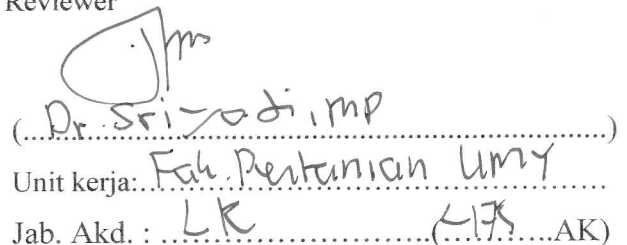 Reviewer
(...Dr. Sriyadi, MP...)
Unit kerja:..Fak. Pertanian UMY
Jab. Akd. : ..LK...(...AK)